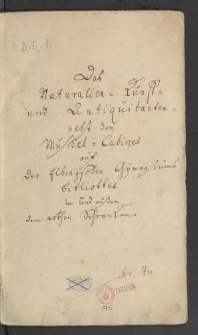 B.E. 1.
Das
Naturalien- Kunst-
und Antiquitaeten-
nebst dem
Müntzel-Cabinet
auf
Der Elbingschen Gymnasiums
Bibliothec
in und ausser
den rothen Schrancken.
No. 7a